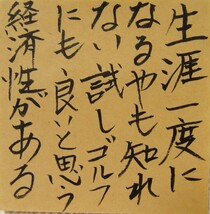 生涯一度に
なるやも知れ
ない試しゴルフ
にも良いと思う
経済性がある